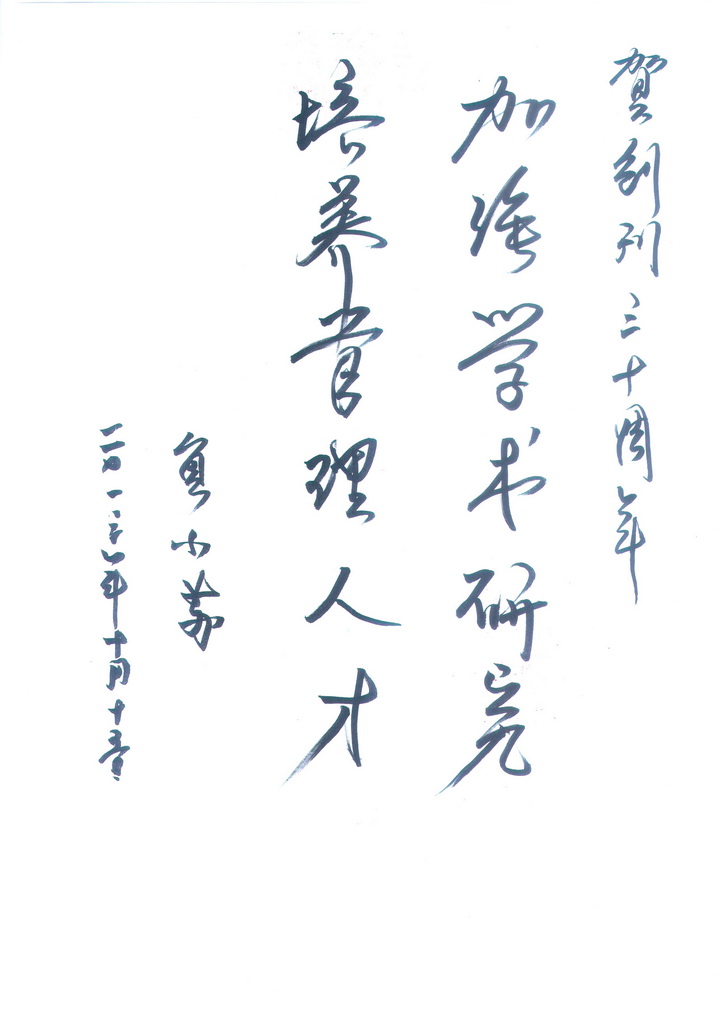 賀创刊三十週年
加强学术研究
培养管理人才
贠小苏
二〇一三年十月十五日